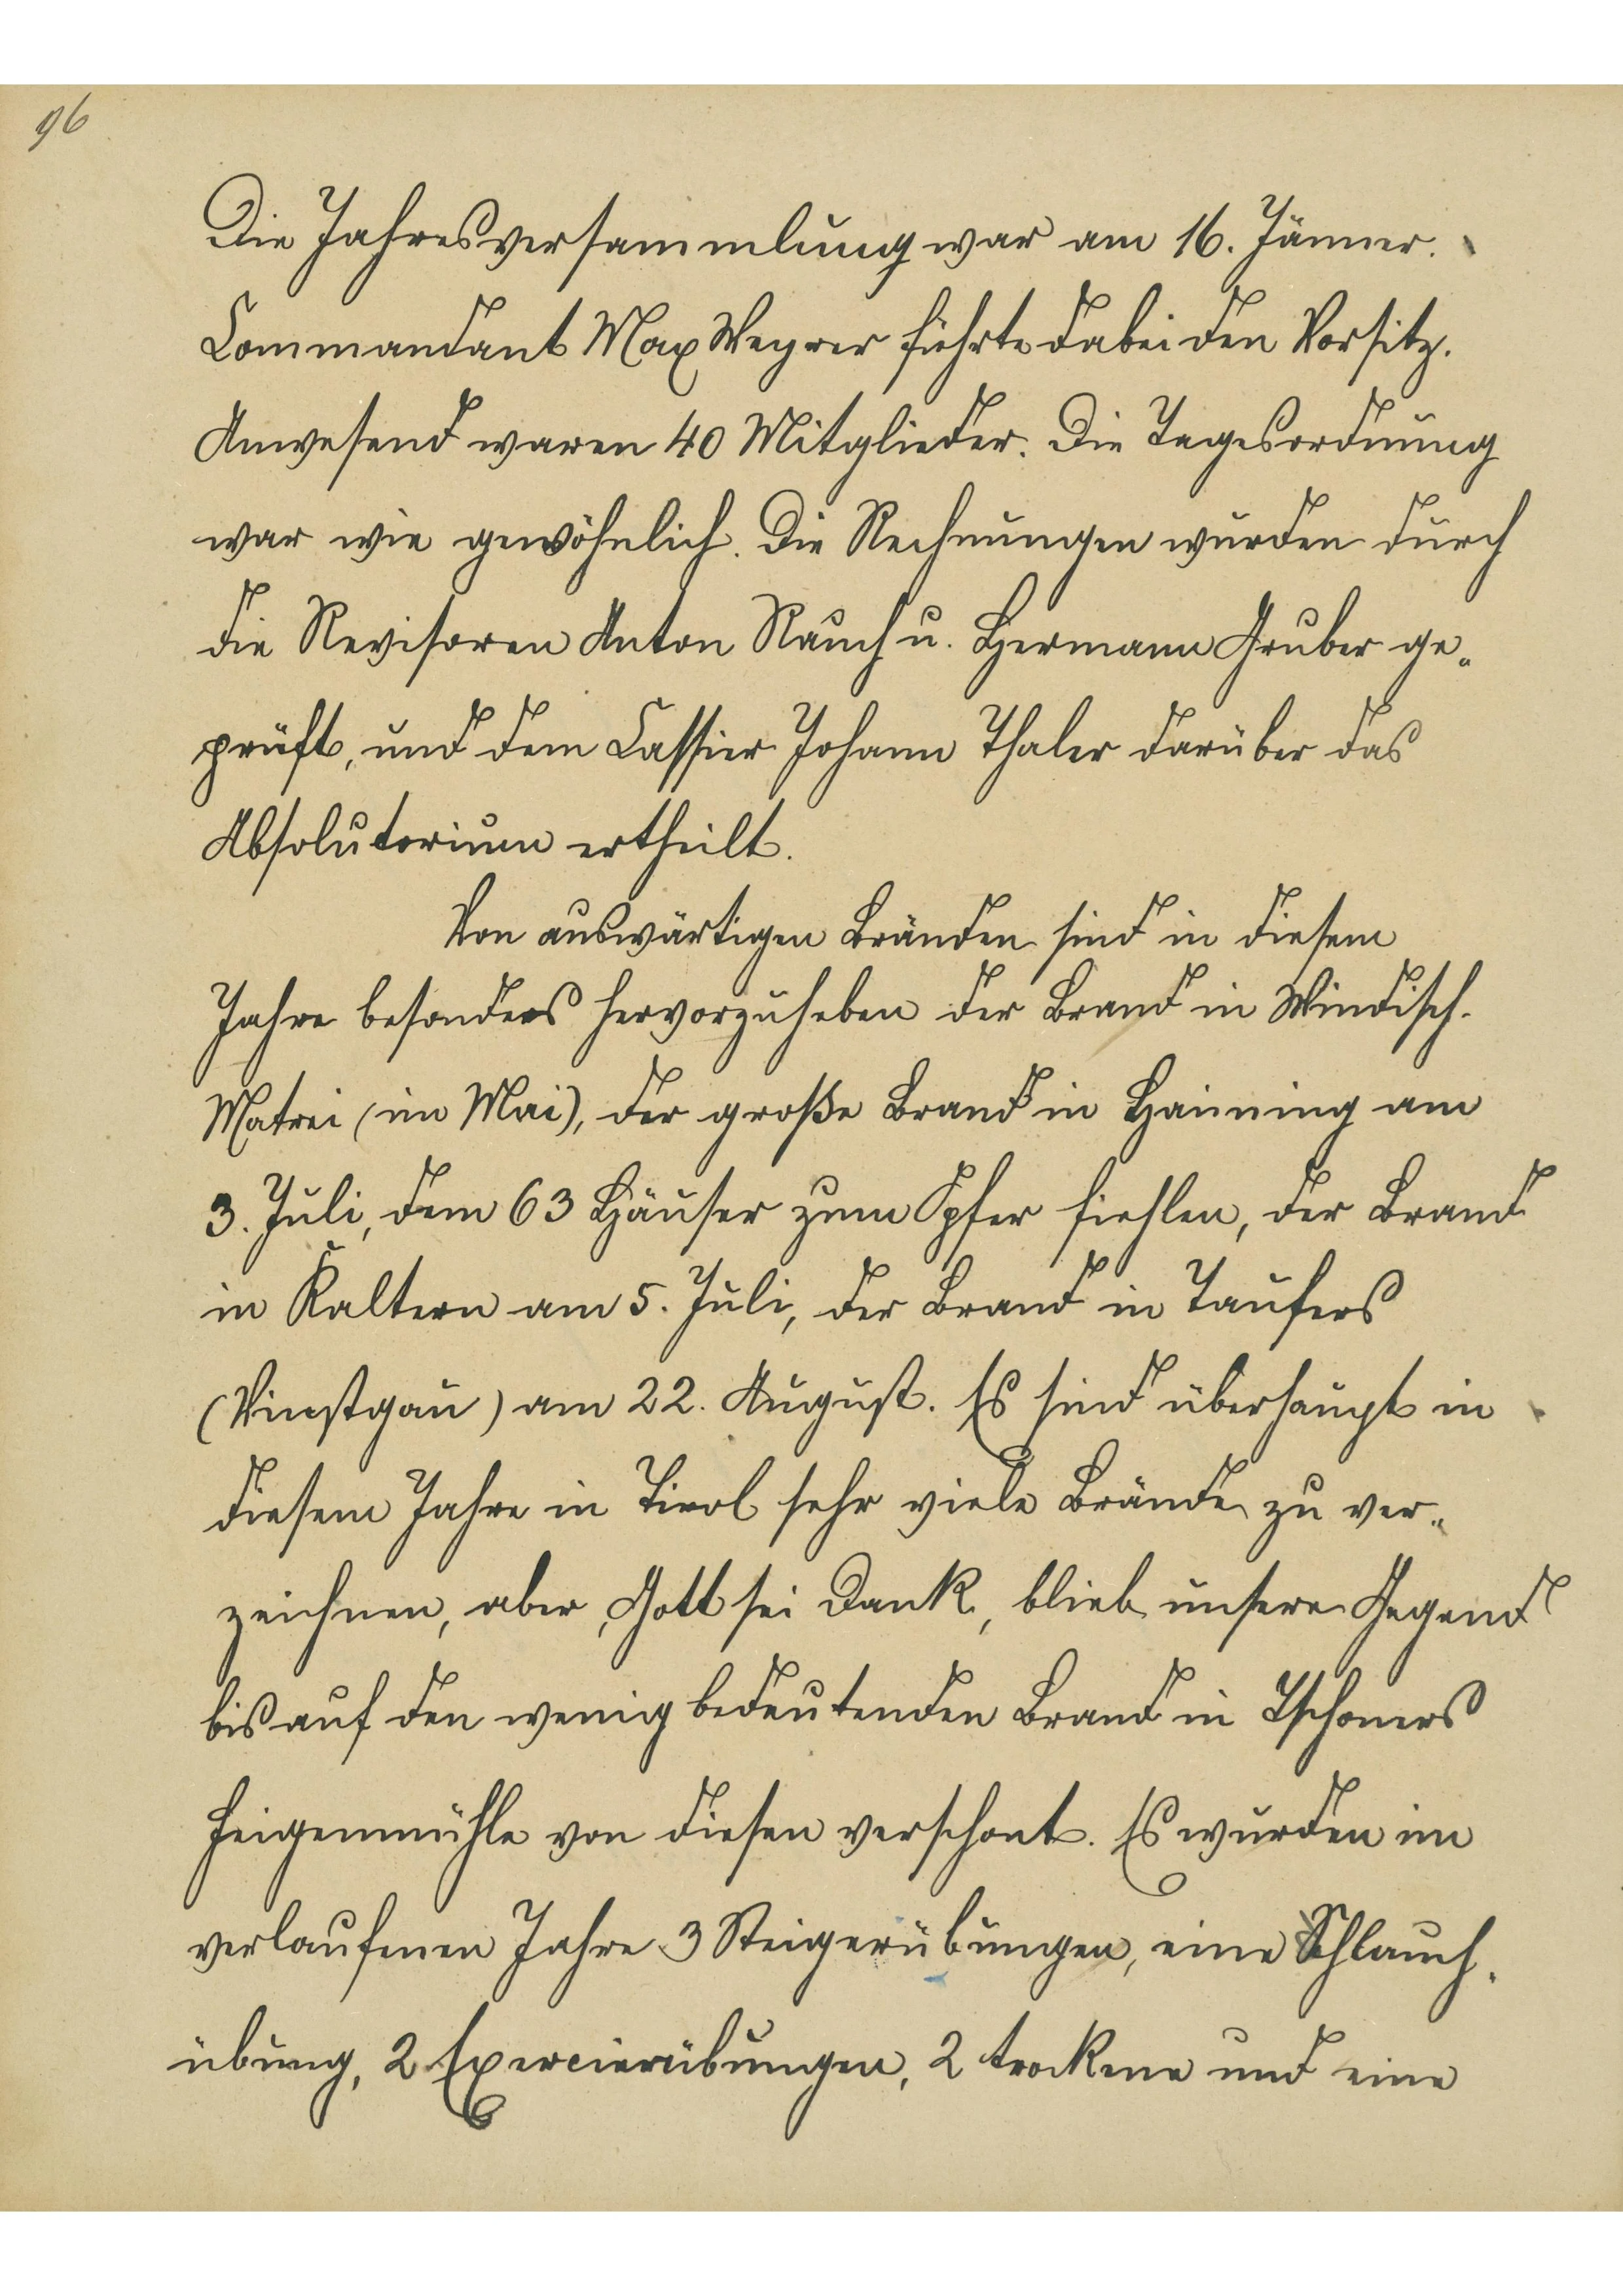 96
Die Jahresversammlung war am 16. Jänner.
Commandant Max Weyrer führte dabei den Vorsitz.
Anwesend waren 40 Mitglieder. Die Tagesordnung
war wie gewöhnlich. Die Rechnungen wurden durch
die Revisoren Anton Rauch u. Hermann Gruber ge-
prüft, und dem Cassier Johann Thaler darüber das
Absolutorium ertheilt.
Von auswärtigen Bränden sind in diesem
Jahre besonders hervorzuheben der Brand in Windisch-
Matrei (im Mai), der große Brand in Haiming am
3. Juli, dem 63 Häuser zum Opfer fiehlen, der Brand
in Kaltern am 5. Juli, der Brand in Taufers
(Vinstgau) am 22. August. Es sind überhaupt in
diesem Jahre in Tirol sehr viele Brände zu ver-
zeichnen, aber, Gott sei Dank, blieb unsere Gegend
bis auf den wenig bedeutenden Brand in Tschoners
Feigenmühle von diesen verschont. Es wurden im
verlaufenen Jahre 3 Steigerübungen, eine Schlauch-
übung, 2 Exercierübungen, 2 trockene und eine